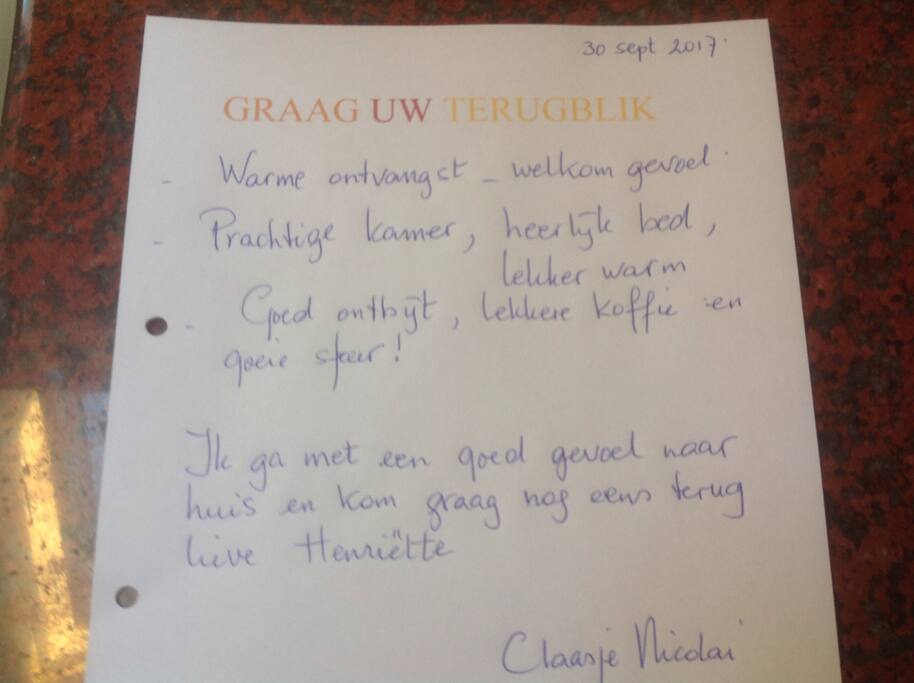 30 sept 2017.
GRAAG UW TERUGBLIK
- Warme ontvangst - welkom gevoel.
- Prachtige kamer, heerlijk bed,
lekker warm
- Goed ontbijt, lekkere koffie en
goeie sfeer!
Ik ga met een goed gevoel naar
huis en kom graag nog eens terug
lieve Henriëtte
Claasje Nicolai